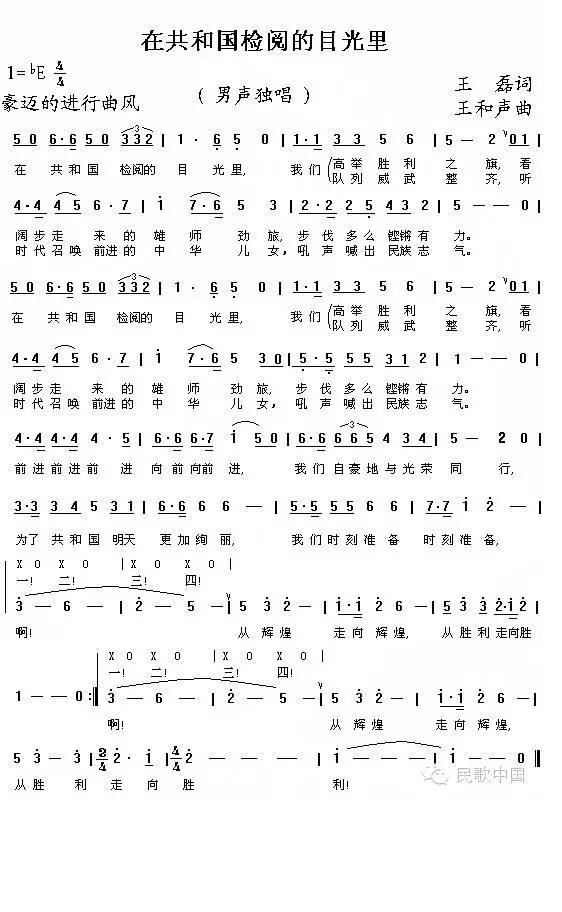 在共和国检阅的目光里
1=♭E 4/4
豪迈的进行曲风
（男声独唱）
王 磊词
王和声曲
5 0 6·6 5 0 3 3 2 | 1 · 6 5 0 | 1·1 3 3 5 6 | 5 - 2 0 1 |
在 共 和 国 检阅的 目 光 里， 我 们 高 举 胜 利 之 旗，看
队 列 威 武 整 齐，听
4·4 4 5 6·7 | 1 7·6 5 3 | 2·2 2 5 3·4 3 2 | 5 - - 0 |
阔 步 走 来 的 雄 师 劲 旅， 步 伐 多 么 铿锵 有 力。
时 代 召 唤 前进 的 中 华 儿 女，吼 声 喊 出 民族 志 气。
5 0 6·6 5 0 3 3 2 | 1 · 6 5 0 | 1·1 3 3 5 6 | 5 - 2 0 1 |
在 共 和 国 检阅的 目 光 里， 我 们 高 举 胜 利 之 旗，看
队 列 威 武 整 齐，听
4·4 4 5 6·7 | 1 7·6 5 3 0 | 5·5 5 5 3 1 2 | 1 - - 0 |
阔 步 走 来 的 雄 师 劲 旅， 步 伐 多 么 铿锵 有 力。
时 代 召 唤 前进 的 中 华 儿 女，吼 声 喊 出 民族 志 气。
4·4 4·4 4 · 5 | 6·6 6·7 1 5 0 | 6·6 6 6 5 4 3 4 | 5 - 2 0 |
前 进 前 进 前 进 向 前 向 前 进， 我 们 自 豪 地 与 光 荣 同 行，
3·3 3 4 5 3 1 | 6·6 6 6 - | 5·5 5 5 6 6 5 | 7·7 1 2 - |
为了 共 和 国 明天 更 加 绚 丽， 我 们 时 刻 准 备 时 刻 准 备，
X O X O | X O X O |
一！ 二！ 三！ 四！
3 - 6 - | 2 - 5 - | 5 3 2 - | 1·1 2 6 - | 5 3 3 2·1 2 |
啊！ 从 辉 煌 走 向 辉 煌， 从 胜 利 走向胜
X O X O | X O X O |
一！ 二！ 三！ 四！
1 - - 0 :‖ 3 - 6 - | 2 - 5 - | 5 3 2 - | 1·1 2 6 - |
啊！ 从 辉 煌 走 向 辉 煌，
5 3 - 3 | 2/4 2 · 1 | 4/4 2 - - - | 1 - - - | 1 - - 0 ‖
从 胜 利 走 向 胜 利！
民歌中国